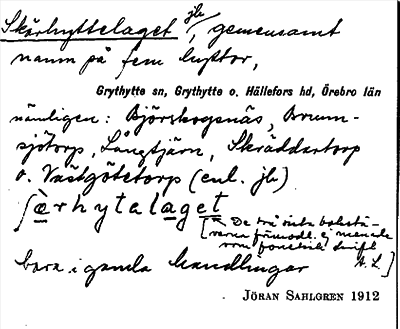 Skärhyttelaget jb/, gemensamt
namn på fem hyttor,
Grythytte sn, Grythytte o. Hällefors hd, Örebro län
nämligen: Björskogsnäs, Brunn-
sjötorp, Långtjärn, Skräddartorp
o. Västgötetorp (enl. jb)
ʃærhytalaget
[De två sista bokstä-
verna förmodl. ej menade
som fonetisk skrift
bara i gamla handlingar
H. L.]
JÖRAN SAHLGREN 1912